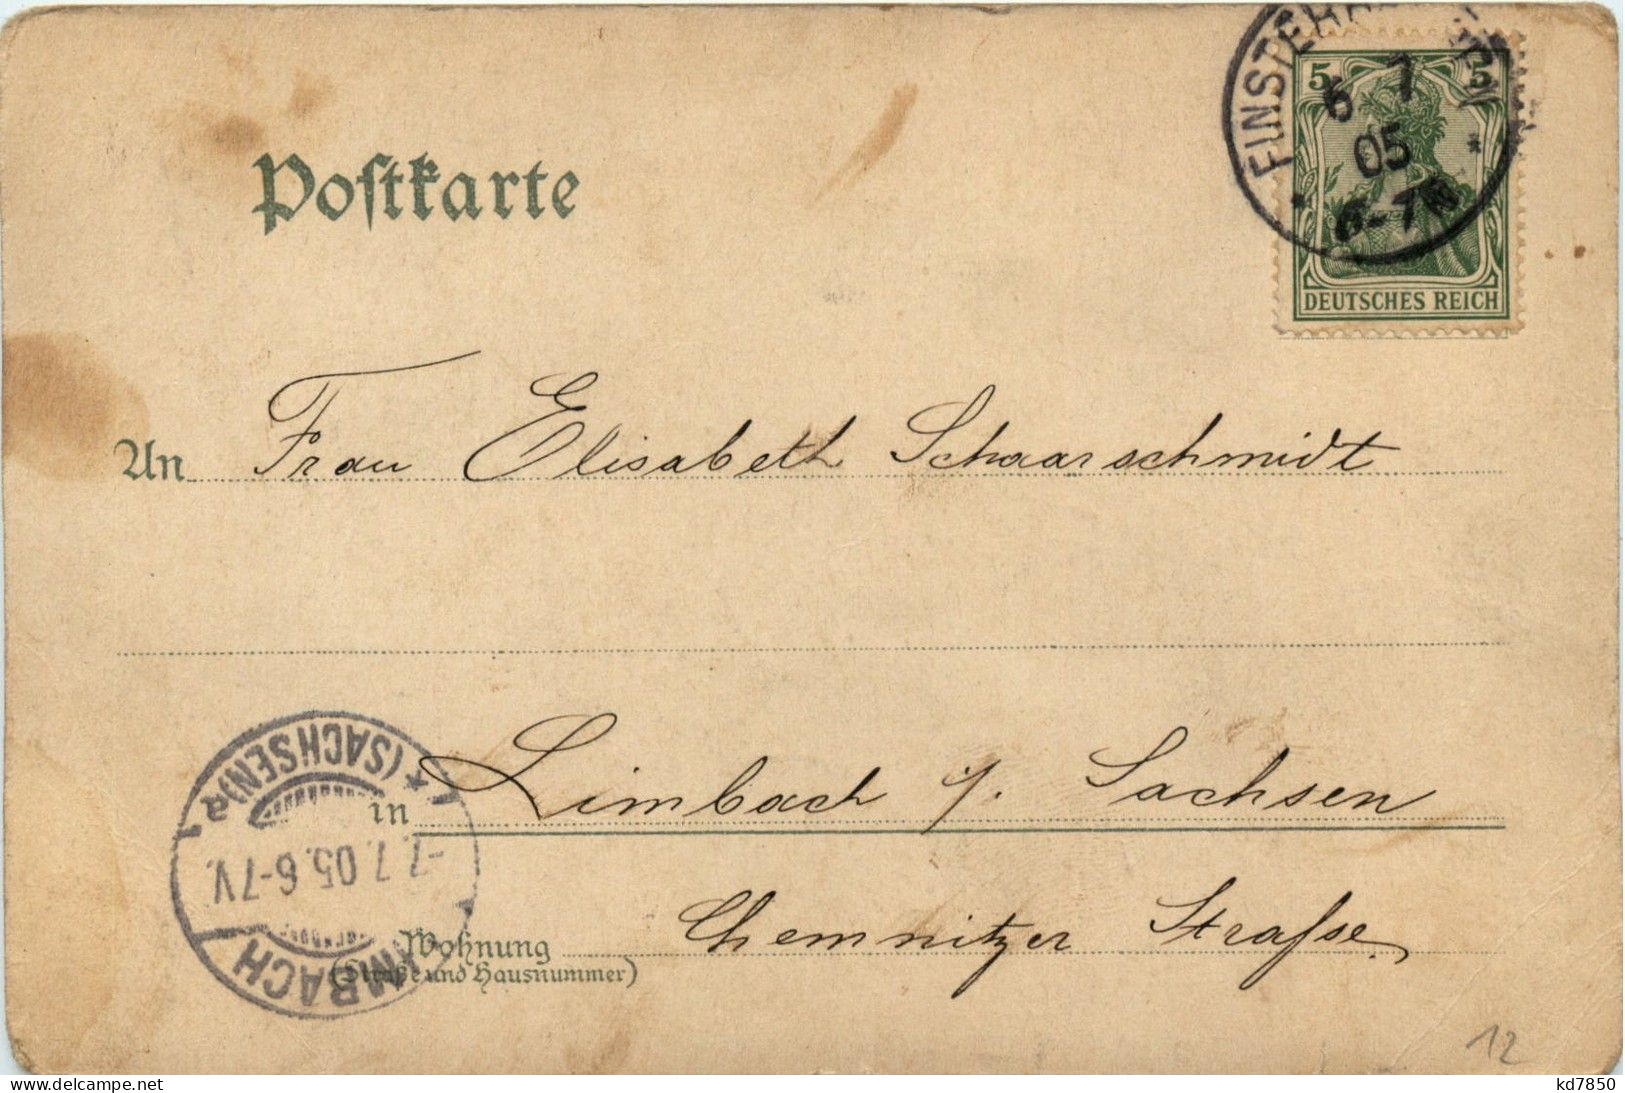 5 5
6 7
05
6-7N
DEUTSCHES REICH
Postkarte
An Frau Elisabeth Schaarschmidt
in Limbach i/. Sachsen
Wohnung Chemnitzer Straſse
(Straße und Hausnummer)
LIMBACH
-7.7.05.6-7V.
* (SACHSEN) *
12
kd7850